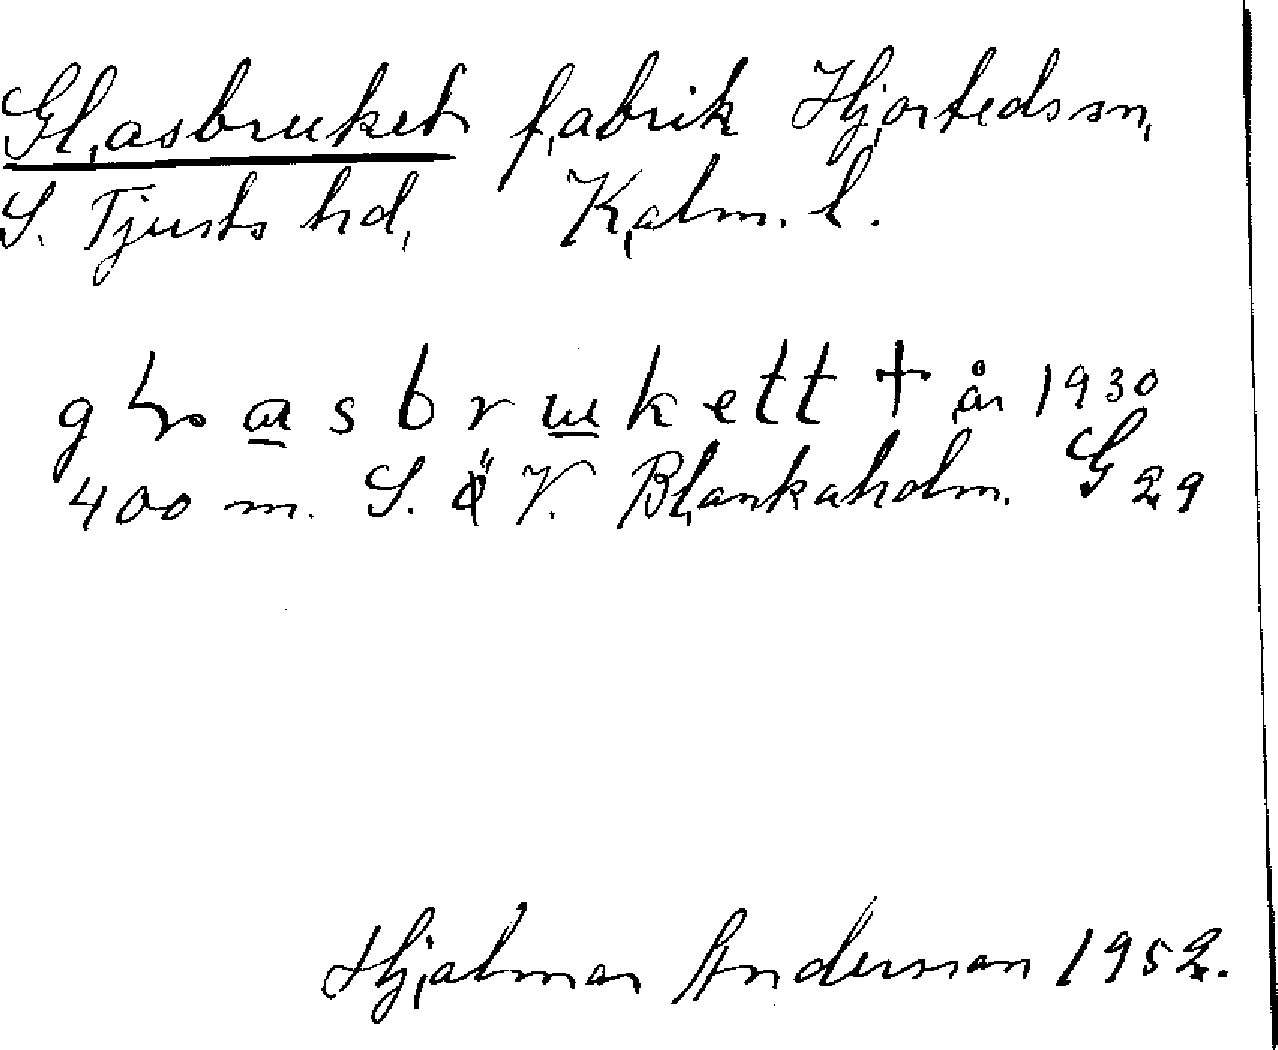 Glasbruket fabrik Hjorteds sn,
S. Tjusts hd, Kalm. l.
glasbrukett † år 1930
400 m. S. Ö V. Blankaholm. G 29
Hjalmar Anderman 1952.